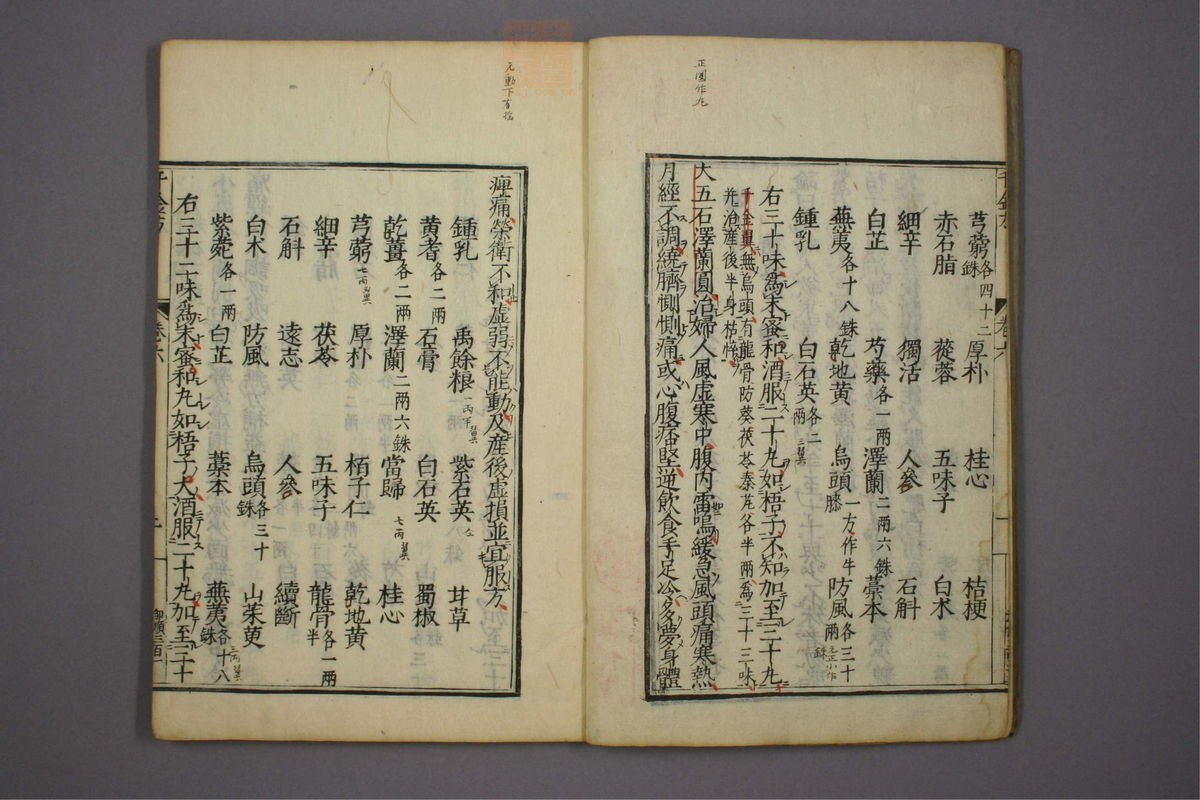 正圓作丸
芎藭各四十二銖 厚朴 桂心 桔梗
赤石脂 蓯蓉 五味子 白朮
細辛 獨活 人參 石斛
白芷 芍藥各一兩 澤蘭二兩六銖 藁本
蕪荑各十八銖 乾地黄 烏頭一方作牛膝 防風各三十兩
鍾乳 白石英各二兩
右三十味爲末蜜和酒服二十丸如梧子不知加至三十丸
千金翼無烏頭有龍骨防葵茯苓秦艽各半兩爲三十三味
并治産後半身枯悴
大五石澤蘭圓治婦人風虚寒中腹内雷鳴緩急風頭痛寒熱
月經不調繞臍惻惻痛或心腹痞堅逆飲食手足冷多夢身體
千金方 卷六
痺痛榮衛不和虚弱不能動及産後虚損並宜服方
鍾乳 禹餘粮 紫石英 甘草
黄耆各二兩 石膏 白石英 蜀椒
乾薑各二兩 澤蘭二兩六銖 當歸 桂心
芎藭 厚朴 栢子仁 乾地黄
細辛 茯苓 五味子 龍骨各一兩半
石斛 遠志 人參 續斷
白朮 防風 烏頭各三十銖 山茱萸
紫菀各一兩 白芷 藁本 蕪荑各十八銖
右三十二味爲末蜜和丸如梧子大酒服二十丸加至三十
千金方 卷六